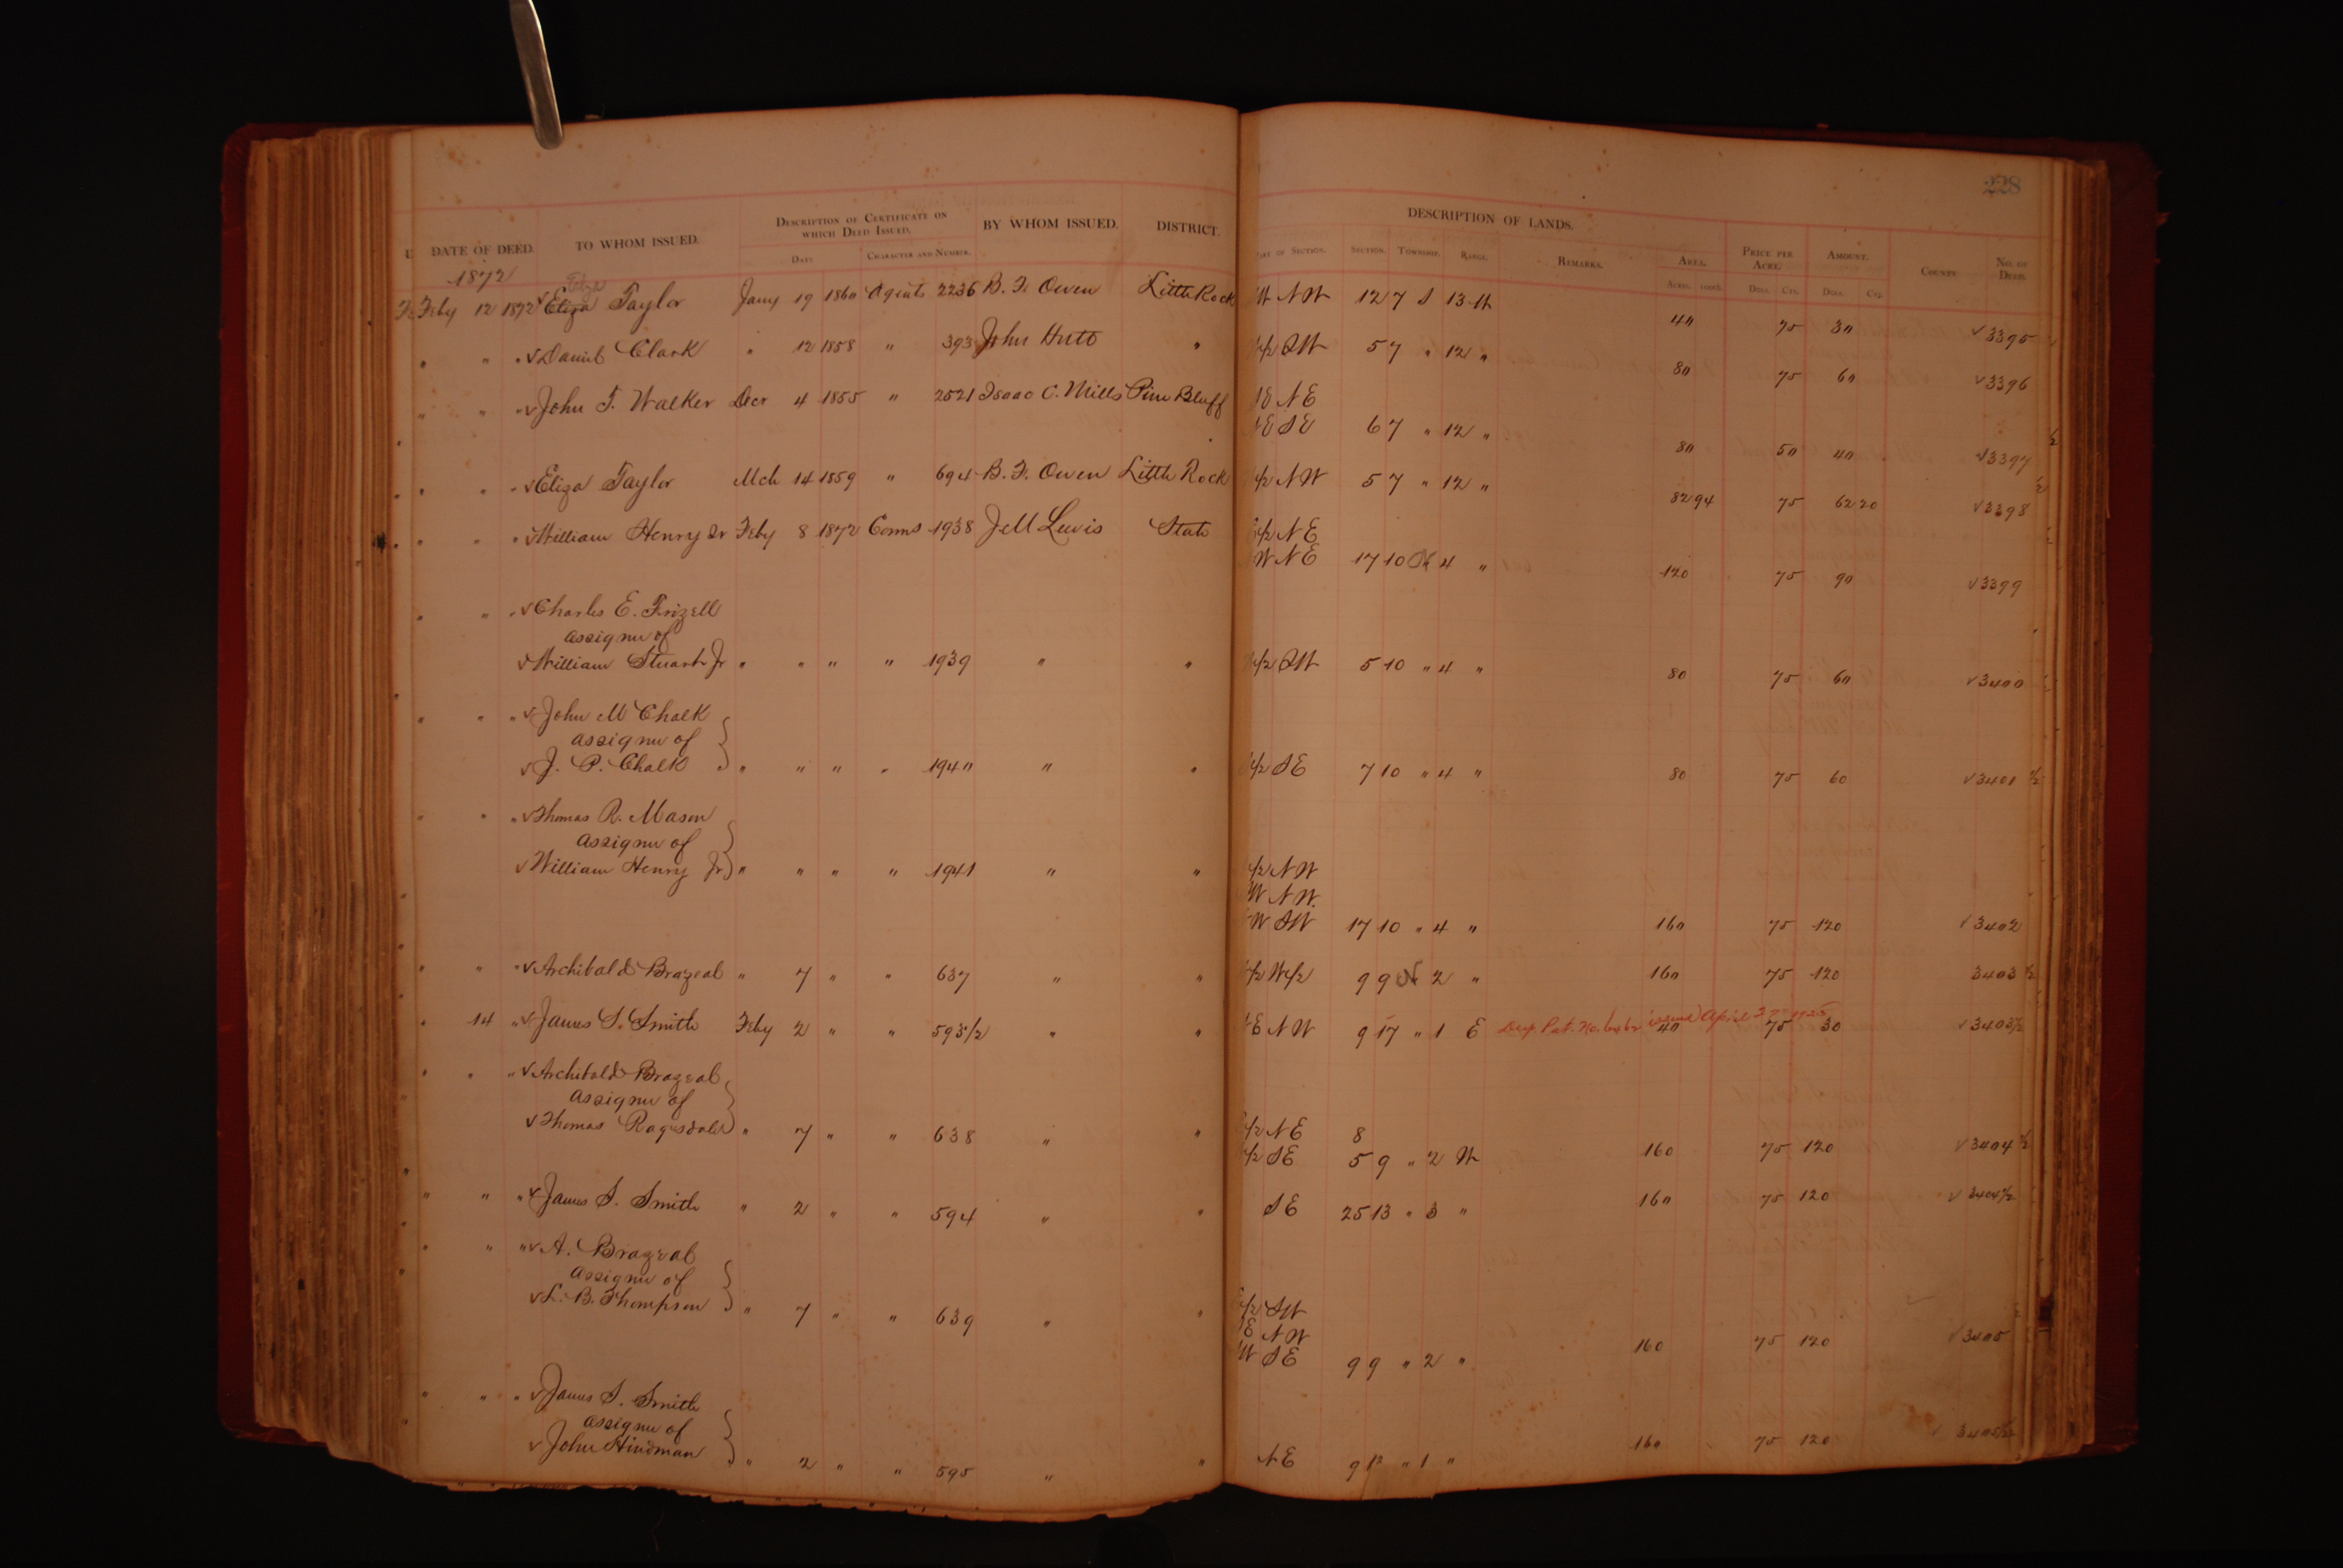 228
DATE OF DEED. TO WHOM ISSUED. DESCRIPTION OF CERTIFICATE ON WHICH DEED ISSUED. BY WHOM ISSUED. DISTRICT. DESCRIPTION OF LANDS. PRICE PER ACRE. AMOUNT. COUNTY NO. OF DEED.
DATE CHARACTER AND NUMBER. OF SECTION. SECTION. TOWNSHIP. RANGE. REMARKS. AREA.
ACRES. 100THS. DOLS. CTS. DOLS. CTS.
1872
Feby 12 1872 Eliza Taylor Jany 19 1860 Agents 2236 B. F. Owen Little Rock W NW 12 7 S 13 W 40 75 30 3395
" " " Daniel Clark " 12 1858 " 393 John Hutt " 1/2 SW 5 7 " 12 " 80 75 60 3396
" " " John T. Walker Decr 4 1855 " 2521 Isaac C. Mills Pine Bluff SE NE
NE SE 6 7 " 12 " 80 50 40 3397
" " " Eliza Taylor Mch 14 1859 " 694 B. F. Owen Little Rock 1/2 NW 5 7 " 12 " 82 94 75 62 20 3398
" " " William Henry Sr Feby 8 1872 Coms 1938 Jeff Lewis State 1/2 NE
W NE 17 10 N 4 " 120 75 90 3399
" " " Charles E. Frizell
assignee of
William Stuart Jr " " " " 1939 " " 1/2 SW 5 10 " 4 " 80 75 60 3400
" " " John M Chalk
assignee of
J. P. Chalk " " " " 1940 " " 1/2 SE 7 10 " 4 " 80 75 60 3401
" " " Thomas R. Mason
assignee of
William Henry Jr " " " " 1941 " " 1/2 NW
W NW.
W SW 17 10 " 4 " 160 75 120 3402
" " " Archibald Brazeal " 7 " " 637 " " 1/2 W1/2 9 9 N 2 " 160 75 120 3403
" 14 " James S. Smith Feby 2 " " 593 1/2 " " E NW 9 17 " 1 E Dup. Pat. No. issued April 3 1925 40 75 30 3403 1/2
" " " Archibald Brazeal
assignee of
Thomas Ragsdale " 7 " " 638 " " 1/2 NE 8
1/2 SE 5 9 " 2 W 160 75 120 3404
" " " James S. Smith " 2 " " 594 " " SE 25 13 " 3 " 160 75 120 3404 1/2
" " " A. Brazeal
assignee of
L. B. Thompson " 7 " " 639 " " 1/2 SW
E NW
W SE 9 9 " 2 " 160 75 120 3405
" " " James S. Smith
assignee of
John Hindman " 2 " " 595 " " NE 9 " 1 " 160 75 120 3405 1/2